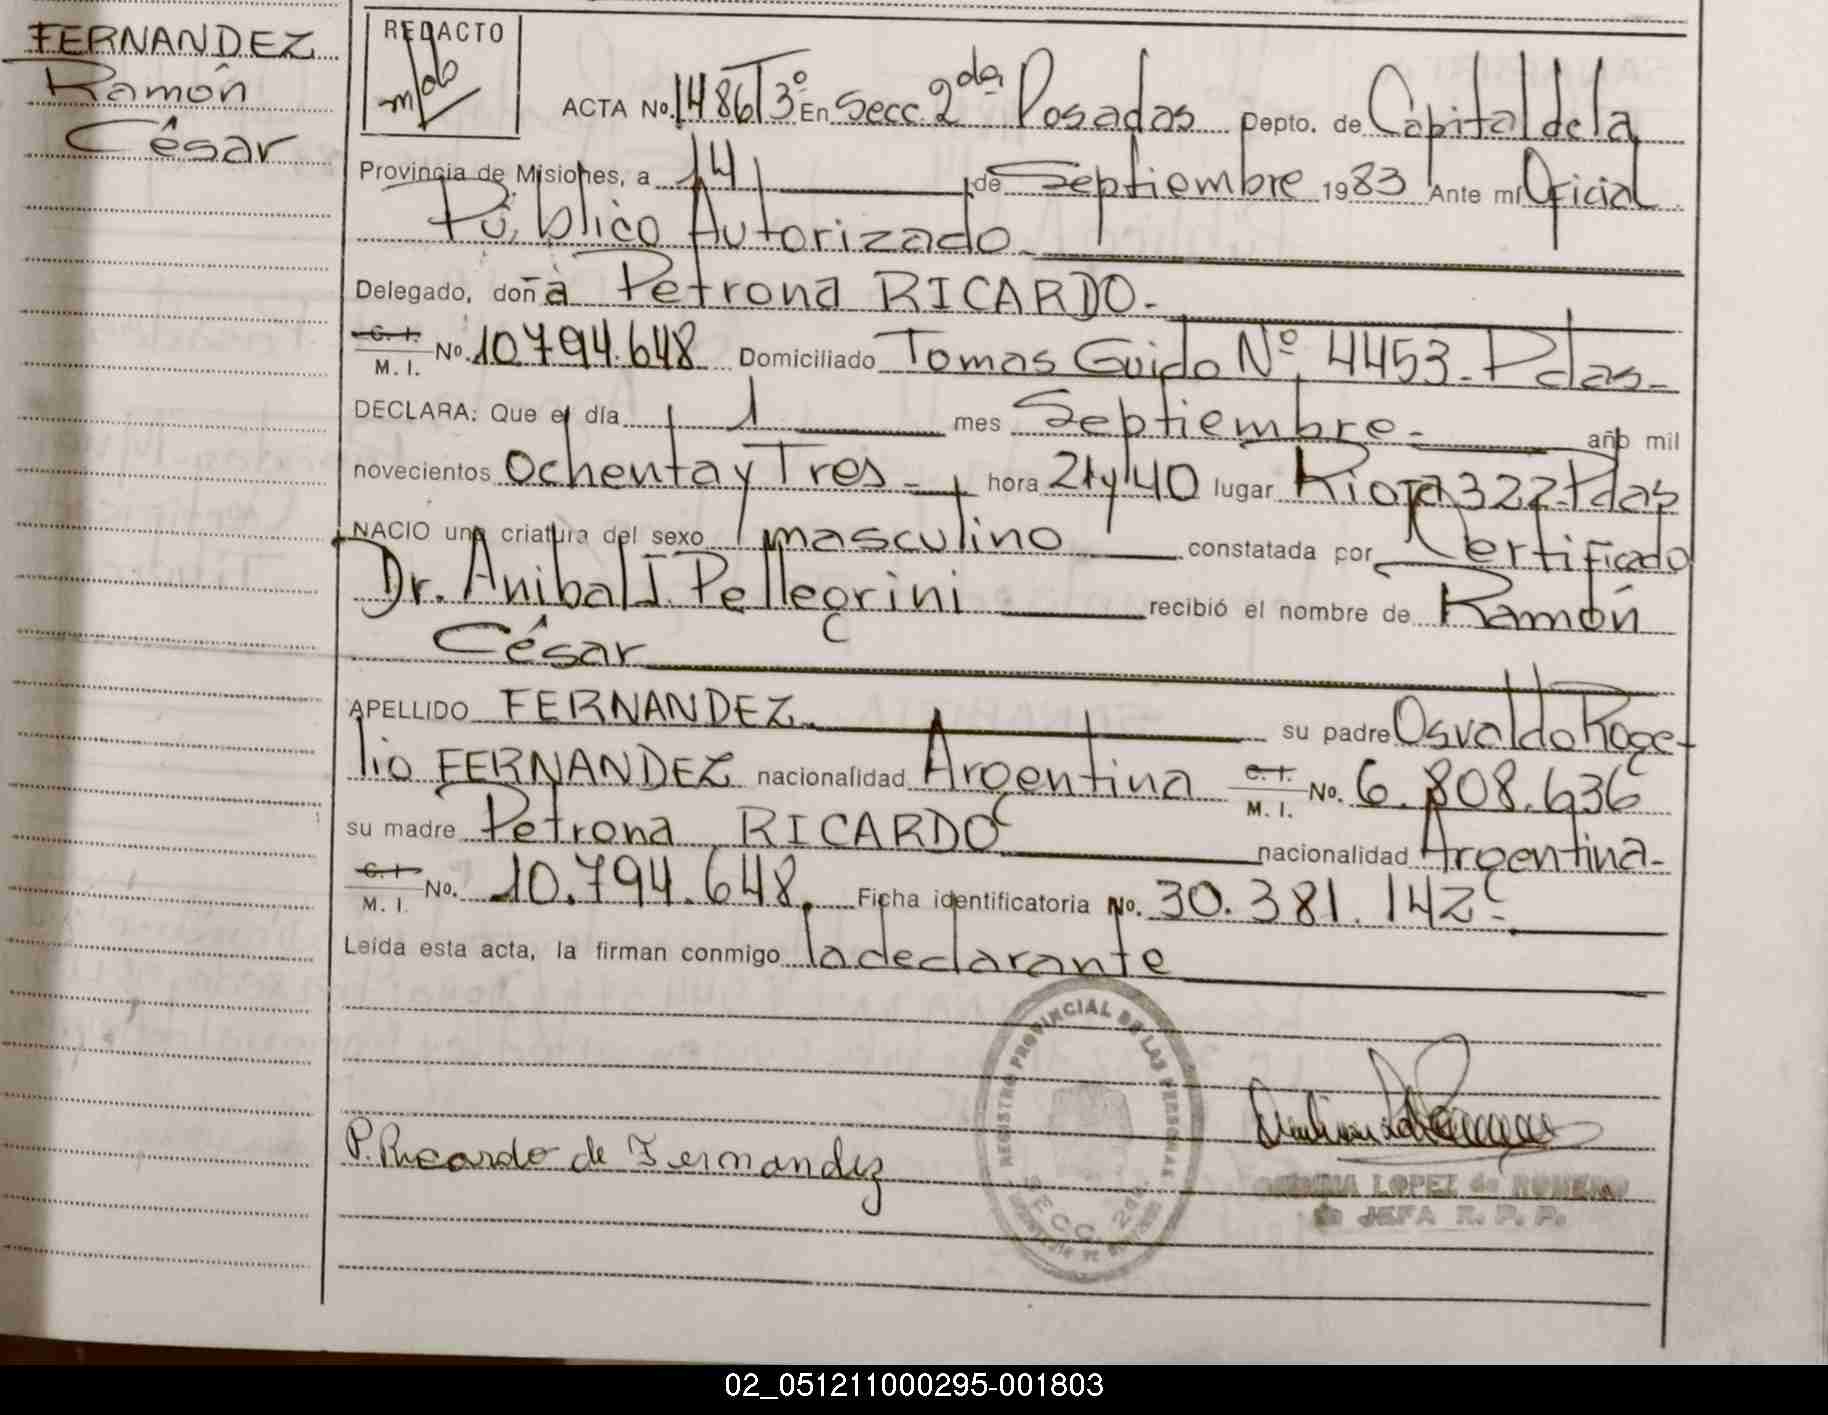 FERNANDEZ
Ramón
César
REDACTO
ACTA No. 1486 T3º En Secc. 2da Posadas Depto. de Capital de la
Provincia de Misiones, a 14 de Septiembre 1983 Ante mí Oficial
Público Autorizado
Delegado, doña Petrona RICARDO.-
C. I.
M. I. No. 10.794.648 Domiciliado Tomas Guido Nº 4453 - Pdas-
DECLARA: Que el día 1 mes Septiembre.- año mil
novecientos ochenta y Tres - hora 21 y 40 lugar Rioja 322 - Pdas
NACIO una criatura del sexo masculino constatada por Certificado
Dr. Anibal J. Pellegrini recibió el nombre de Ramón
César
APELLIDO FERNANDEZ su padre Osvaldo Roge-
lio FERNANDEZ nacionalidad Argentina C. I.
M. I. No. 6.808.636
su madre Petrona RICARDO nacionalidad Argentina-
C. I.
M. I. No. 10.794.648. Ficha identificatoria No. 30.381.142-
Leída esta acta, la firman conmigo la declarante
REGISTRO PROVINCIAL DE LAS PERSONAS
SECC. 2da
P. Ricardo de Fernandez
LOPEZ de ROMERO
JEFA R. P. P.
02_051211000295-001803